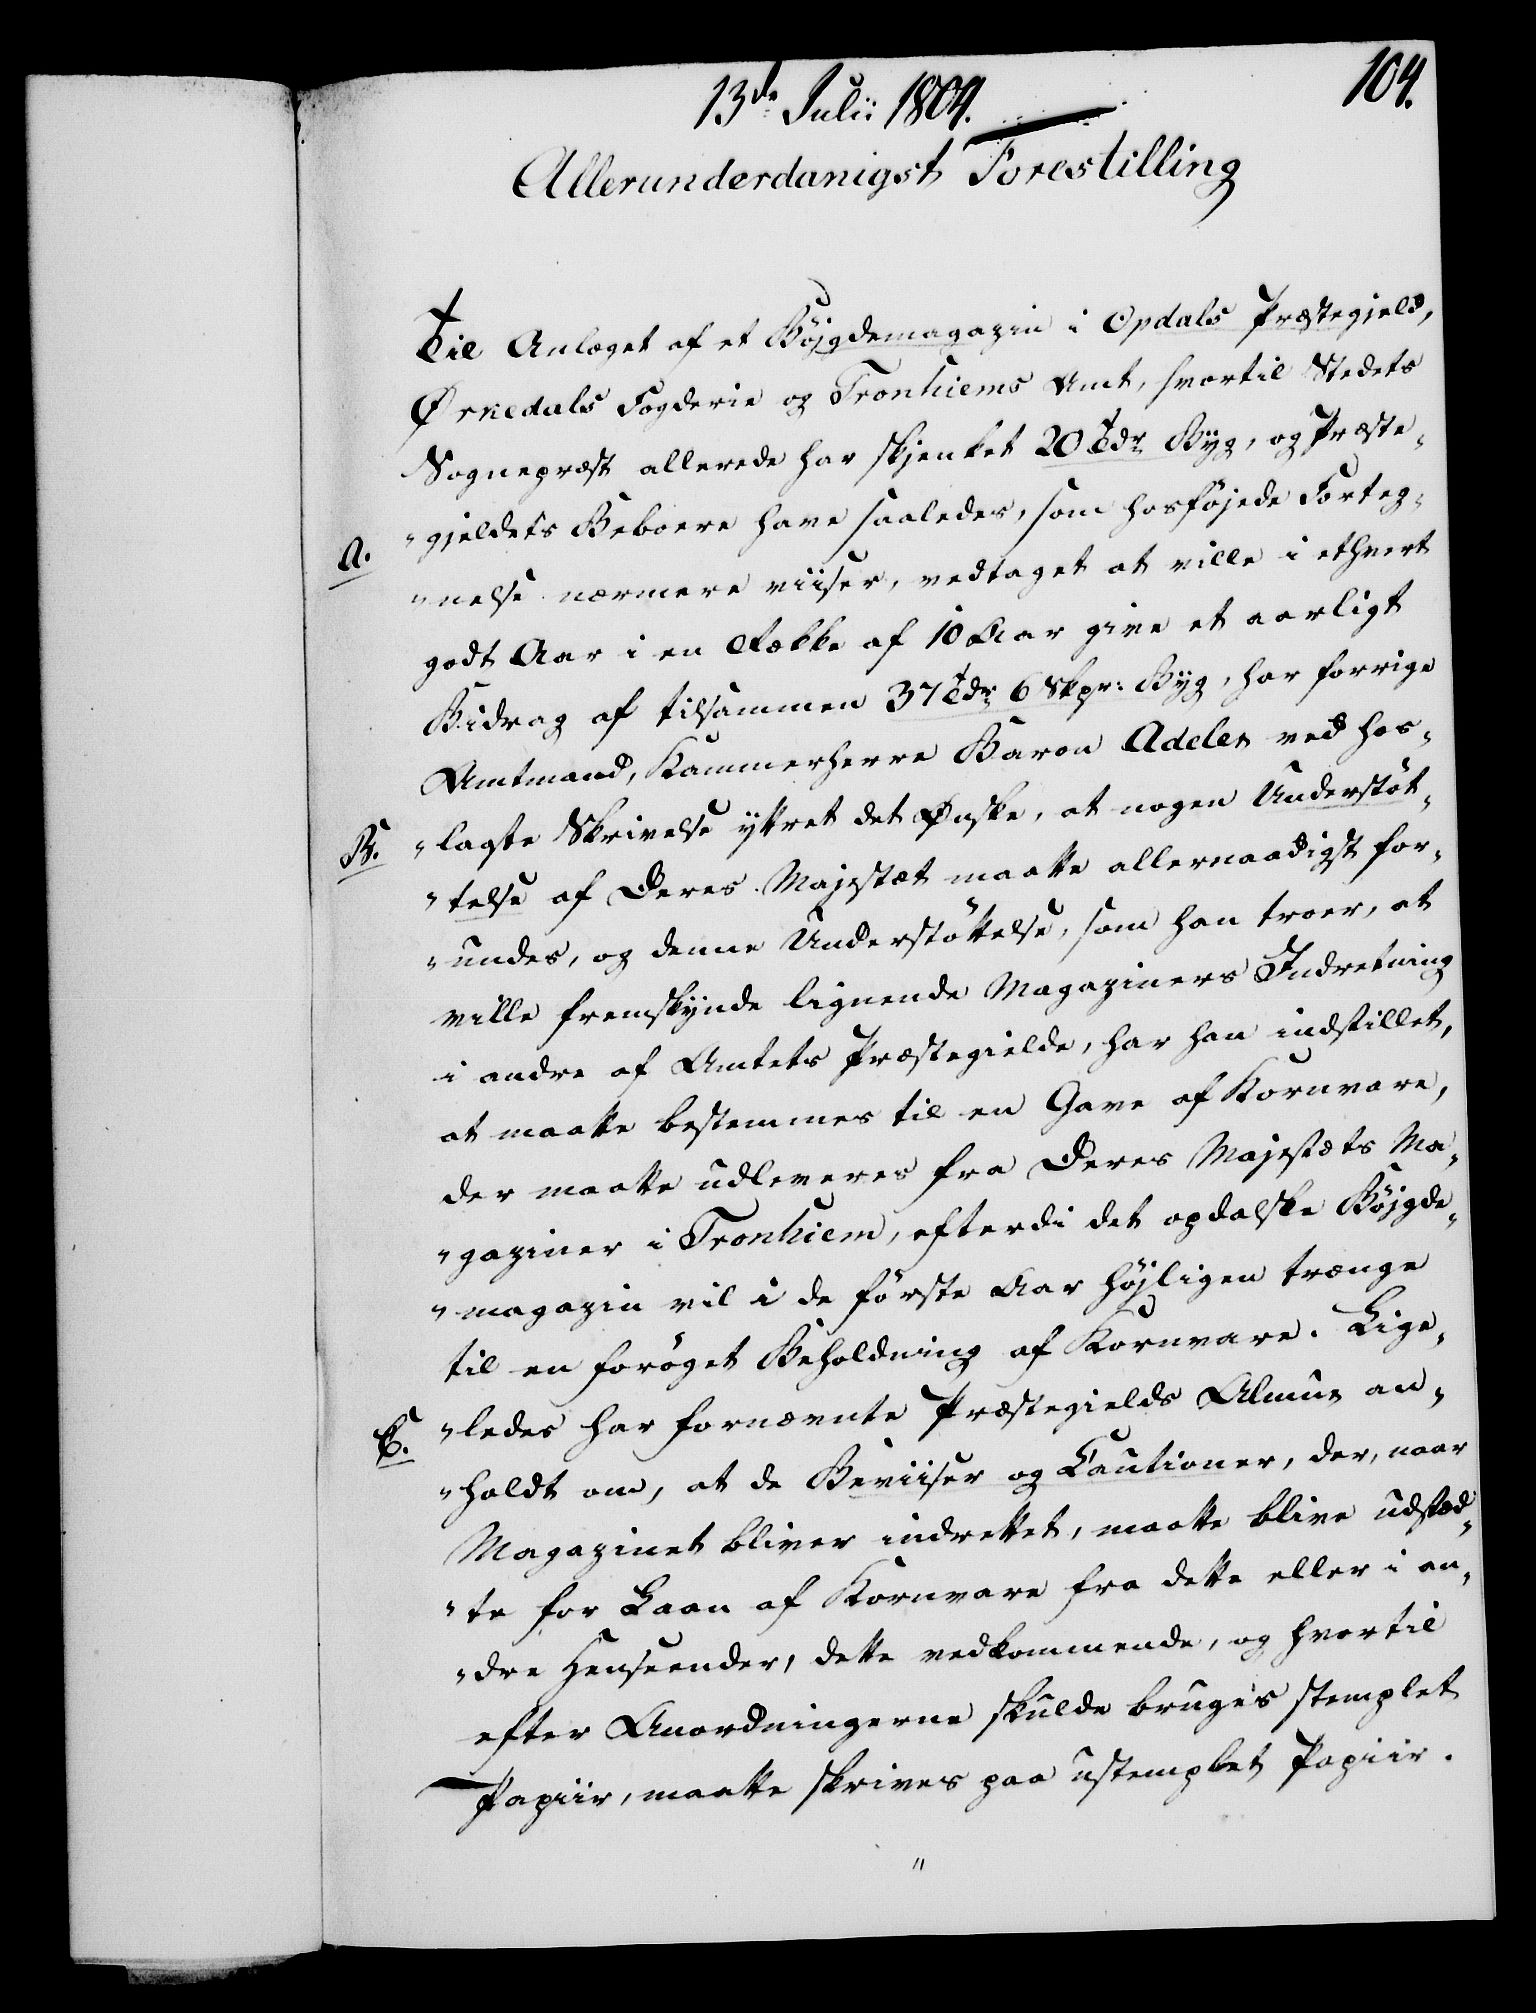 104.
13de Julii 1804.
Allerunderdanigst Forestilling
Til Anlæget af et Böjgdemagazin i Opdals Præstegjeld,
Ørkedals Fogderie og Tronhiems Amt, hvortil Stedets
Sognepræst allerede har skjenket 20 Tdr Byg, og Præste-
A. "gjeldets Beboere have saaledes, som hosföjede Forteg-
"nelse nærmere viiser, vedtaget at ville i ethvert
godt Aar i en Række af 10 Aar give et aarligt
Bidrag af tilsammen 37 Tdr 6 Skpr: Byg, har forrige
Amtmand, Kammerherre Baron Adeler ved hos-
B. "lagte Skrivelse yttret det Ønske, at nogen Understöt-
"telse af Deres Majestæt maatte allernaadigst for-
"undes, og denne Understöttelse, som han troer, at
ville fremskynde lignende Magaziners Indretning
i andre af Amtets Præstegielde, har han indstillet,
at maatte bestemmes til en Gave af Kornvare,
der maatte udleveres fra Deres Majestæts Ma-
"gaziner i Tronhiem, efterdi det opdalske Böjgde-
"magazin vil i de förste Aar höjligen trænge
til en foröget Beholdning af Kornvare. Lige-
C. "ledes har fornævnte Præstegields Almue an-
"holdt om, at de Beviiser og Cautioner, der, naar
Magazinet bliver indrettet, maatte blive udstæd-
"te for Laan af Kornvare fra dette eller i an-
"dre Henseender, dette vedkommende, og hvortil
efter Anordningerne skulde bruges stemplet
Papiir, maatte skrives paa ustemplet Papiir.
"